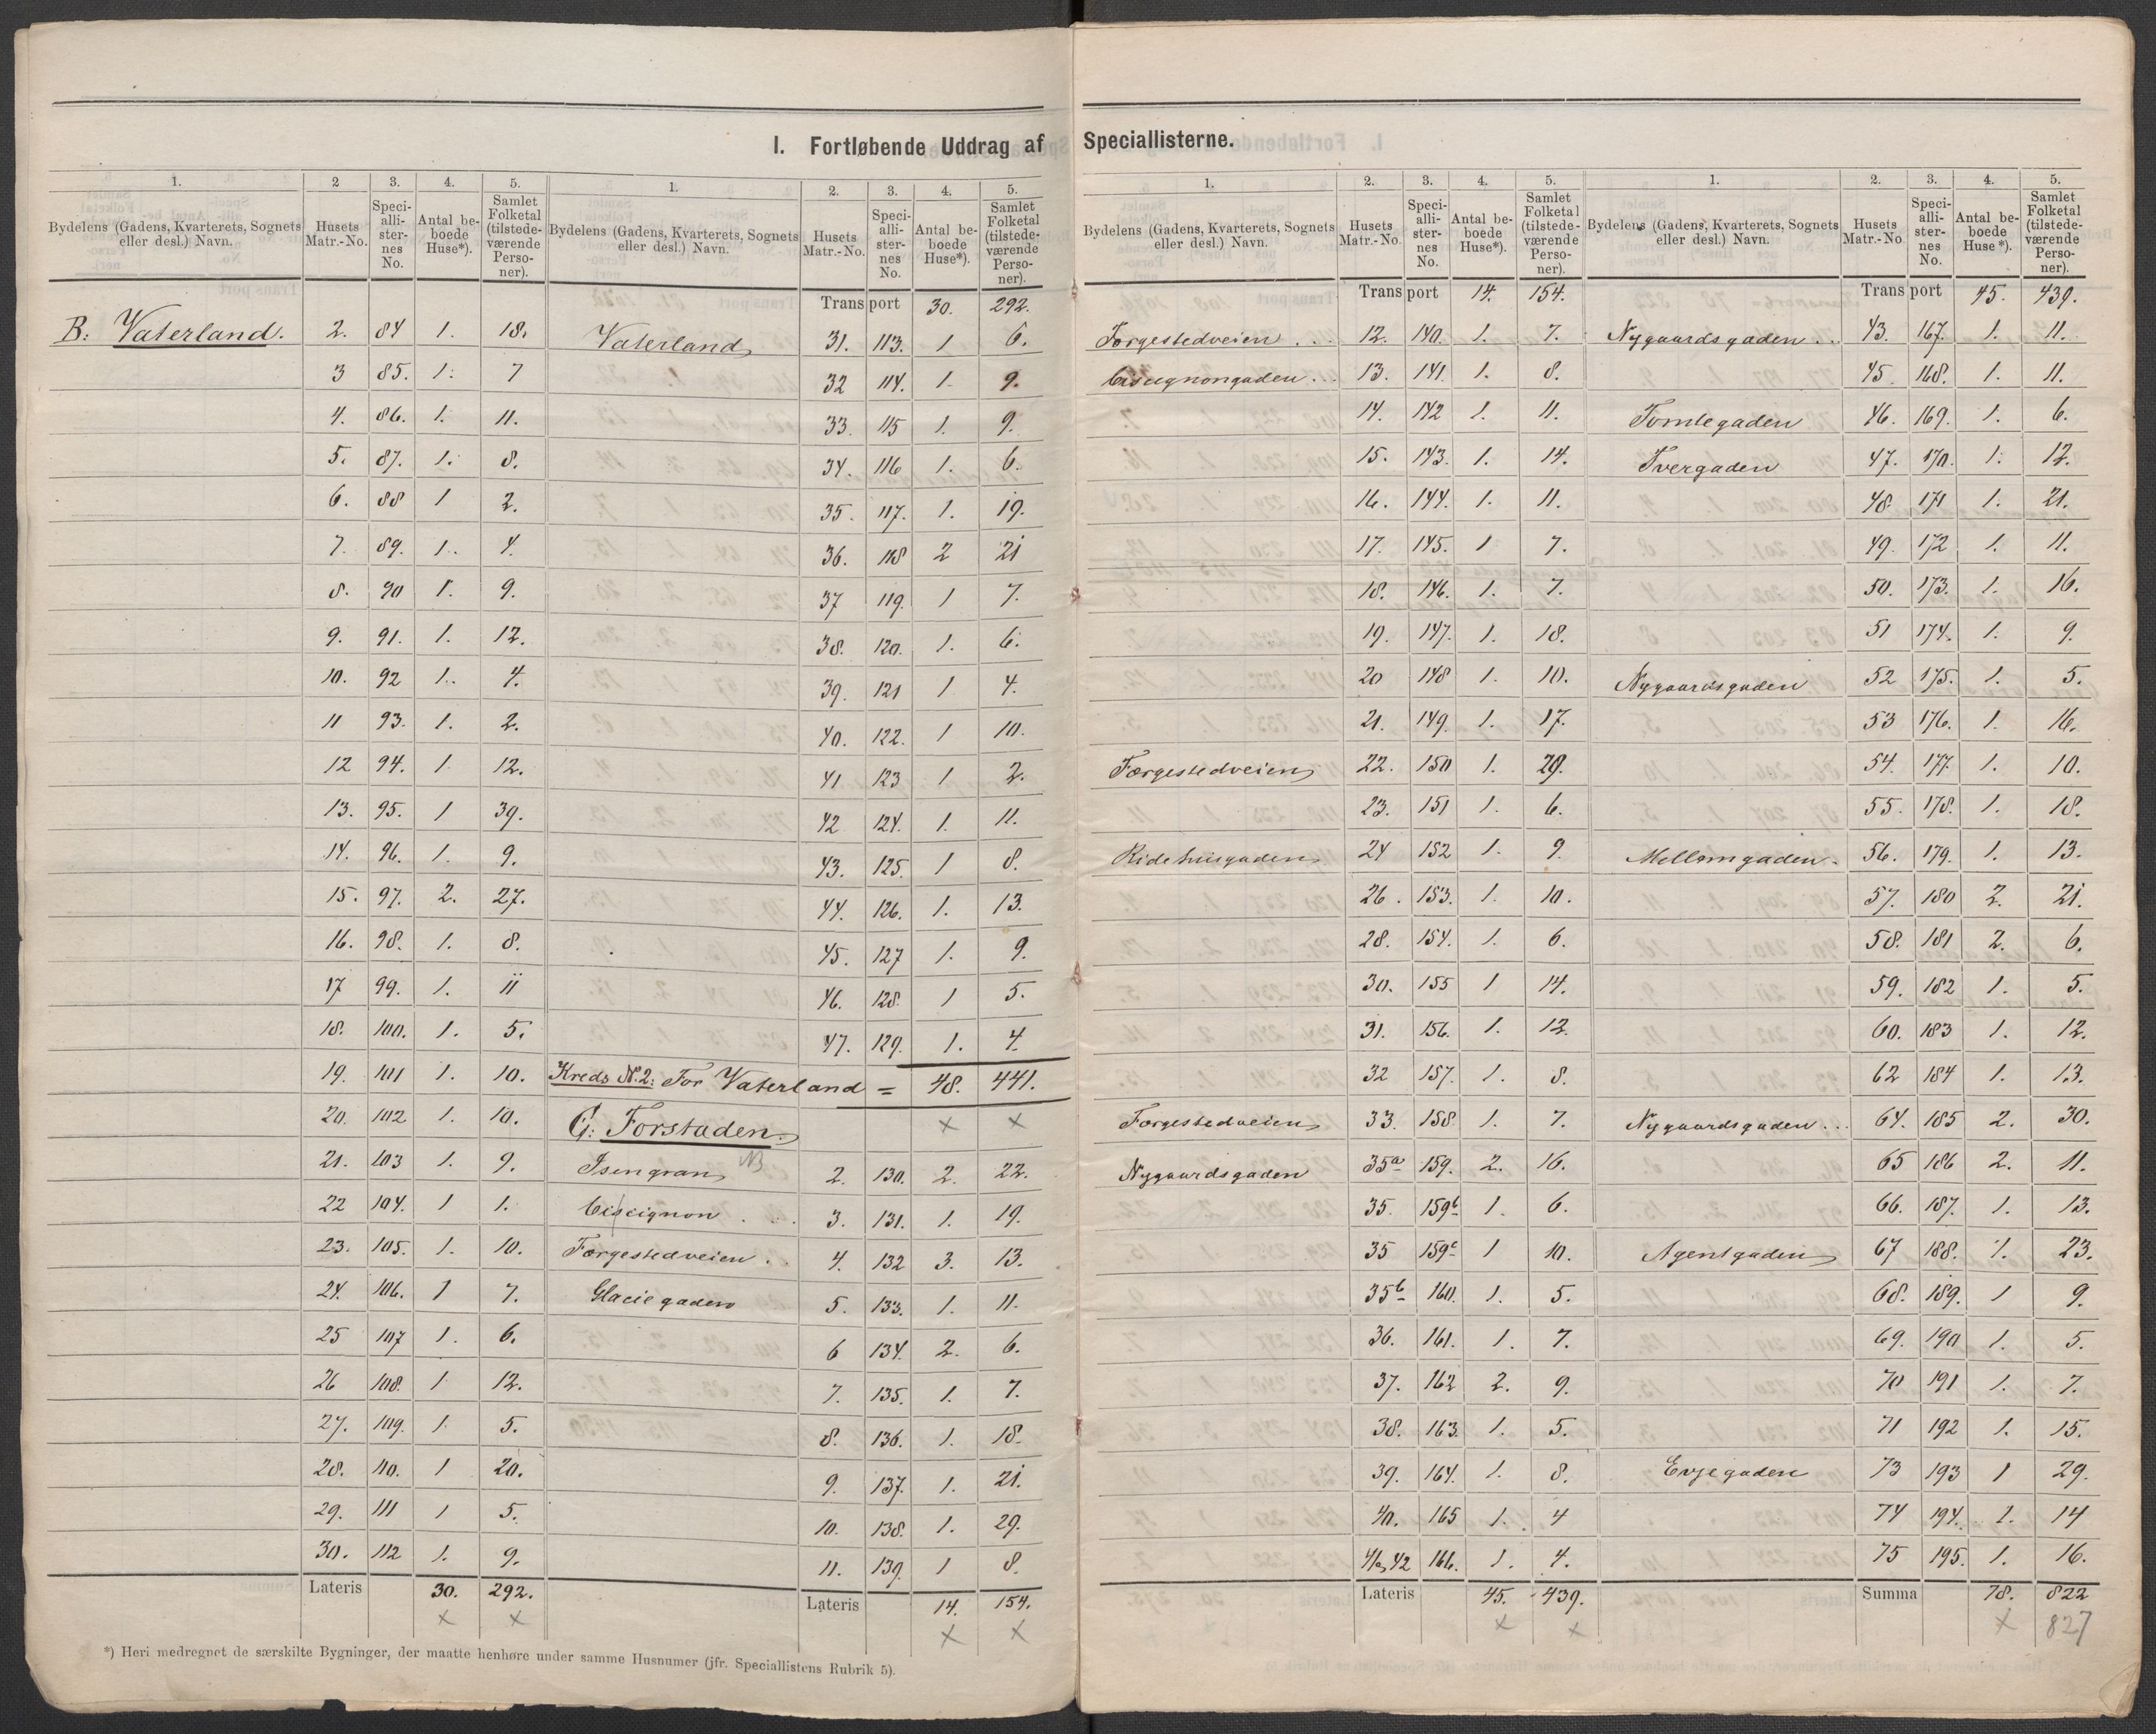 I. Fortløbende Uddrag af Speciallisterne.
1. 2 3. 4. 5.
Bydelens (Gadens, Kvarterets, Sognets eller desl.) Navn. Husets Matr.-No. Speciallisternes No. Antal beboede Huse*). Samlet Folketal (tilstedeværende Personer).
B: Vaterland. 2. 84 1. 18.
3 85. 1. 7
4. 86. 1. 11.
5. 87. 1. 8.
6. 88 1 2.
7. 89. 1. 4.
8. 90 1. 9.
9. 91. 1. 12.
10. 92 1. 4.
11 93. 1. 2.
12 94. 1 12.
13. 95. 1 39.
14. 96. 1. 9.
15. 97. 2. 27.
16. 98. 1. 8.
17 99. 1. 11
18. 100. 1. 5.
19. 101 1. 10.
20. 102 1. 10.
21. 103 1. 9.
22 104. 1 1.
23. 105. 1. 10.
24. 106. 1 7.
25 107 1. 6.
26 108. 1 12.
27. 109. 1. 5.
28. 110. 1 20.
29. 111 1 5.
30. 112 1. 9.
Lateris 30. 292.
× ×
1. 2. 3. 4. 5.
Bydelens (Gadens, Kvarterets, Sognets eller desl.) Navn. Husets Matr.-No. Speciallisternes No. Antal beboede Huse*). Samlet Folketal (tilstedeværende Personer).
Transport 30. 292.
Vaterland 31. 113. 1 6.
32 114. 1. 9.
33. 115 1. 9.
34. 116 1. 6.
35. 117. 1. 19.
36. 118 2 21
37 119. 1 7.
38. 120. 1. 6.
39. 121 1 4.
40. 122. 1 10.
41 123 1 2.
42 124. 1. 11.
43. 125. 1 8.
44. 126. 1. 13.
45. 127 1. 9.
46. 128. 1 5.
47. 129. 1. 4.
Kreds No. 2: For Vaterland = 48. 441.
× ×
G: Forstaden.
NB
Isengran 2. 130. 2. 22.
Cisignon 3. 131. 1. 19.
Færgestedveien. 4. 132 3. 13.
Glaciegaden 5. 133. 1. 11.
6 134. 2. 6.
7. 135. 1. 7.
8. 136. 1. 18.
9. 137. 1. 21.
10. 138. 1. 29.
11. 139. 1 8.
Lateris 14. 154.
× ×
*) Heri medregnet de særskilte Bygninger, der maatte henhøre under samme Husnumer (jfr. Speciallistens Rubrik 5).
1. 2. 3. 4. 5.
Bydelens (Gadens, Kvarterets, Sognets eller desl.) Navn. Husets Matr.-No. Speciallisternes No. Antal beboede Huse*). Samlet Folketal (tilstedeværende Personer).
Transport 14. 154.
Færgestedveien 12. 140. 1. 7.
Cisignongaden 13. 141. 1. 8.
14. 142 1. 11.
15. 143. 1. 14.
16. 144. 1. 11.
17. 145. 1 7.
18. 146. 1. 7.
19. 147. 1. 18.
20 148 1. 10.
21. 149. 1. 17.
Færgestedveien 22. 150 1. 29.
23. 151 1. 6.
Ridehusgaden 24 152 1. 9
26. 153. 1. 10.
28. 154. 1. 6.
30. 155 1 14.
31. 156. 1. 12.
32 157. 1. 8.
Færgestedveien 33. 158 1. 7.
Nygaardsgaden 35a 159. 2. 16.
35. 159b 1. 6.
35 159c 1 10.
35b 160. 1. 5.
36. 161. 1. 7.
37. 162 2. 9.
38. 163. 1. 5.
39. 164. 1. 8.
40. 165 1. 4
41 & 42 166. 1. 4.
Lateris 45. 439.
× ×
1. 2. 3. 4. 5.
Bydelens (Gadens, Kvarterets, Sognets eller desl.) Navn. Husets Matr.-No. Speciallisternes No. Antal beboede Huse*). Samlet Folketal (tilstedeværende Personer).
Transport 45. 439.
Nygaardsgaden 43. 167. 1. 11.
45. 168. 1. 11.
Tomtegaden 46. 169. 1. 6.
Tvergaden 47. 170. 1. 12.
48. 171 1. 21.
49. 172 1. 11.
50. 173. 1. 16.
51 174. 1. 9.
Nygaardsgaden 52 175. 1. 5.
53 176. 1. 16.
54. 177. 1. 10.
55. 178. 1. 18.
Mellomgaden. 56. 179. 1. 13.
57. 180 2. 21.
58. 181 2. 6.
59. 182 1. 5.
60. 183 1. 12.
62 184 1. 13.
Nygaardsgaden 64. 185 2. 30.
65 186 2. 11.
66. 187. 1. 13.
Agentgaden 67 188. 1. 23.
68. 189. 1 9.
69. 190 1. 5.
70 191 1. 7.
71 192 1. 15.
Evjegaden 73 193 1 29.
74 194. 1. 14
75 195. 1. 16.
Summa 78. 822
× 827